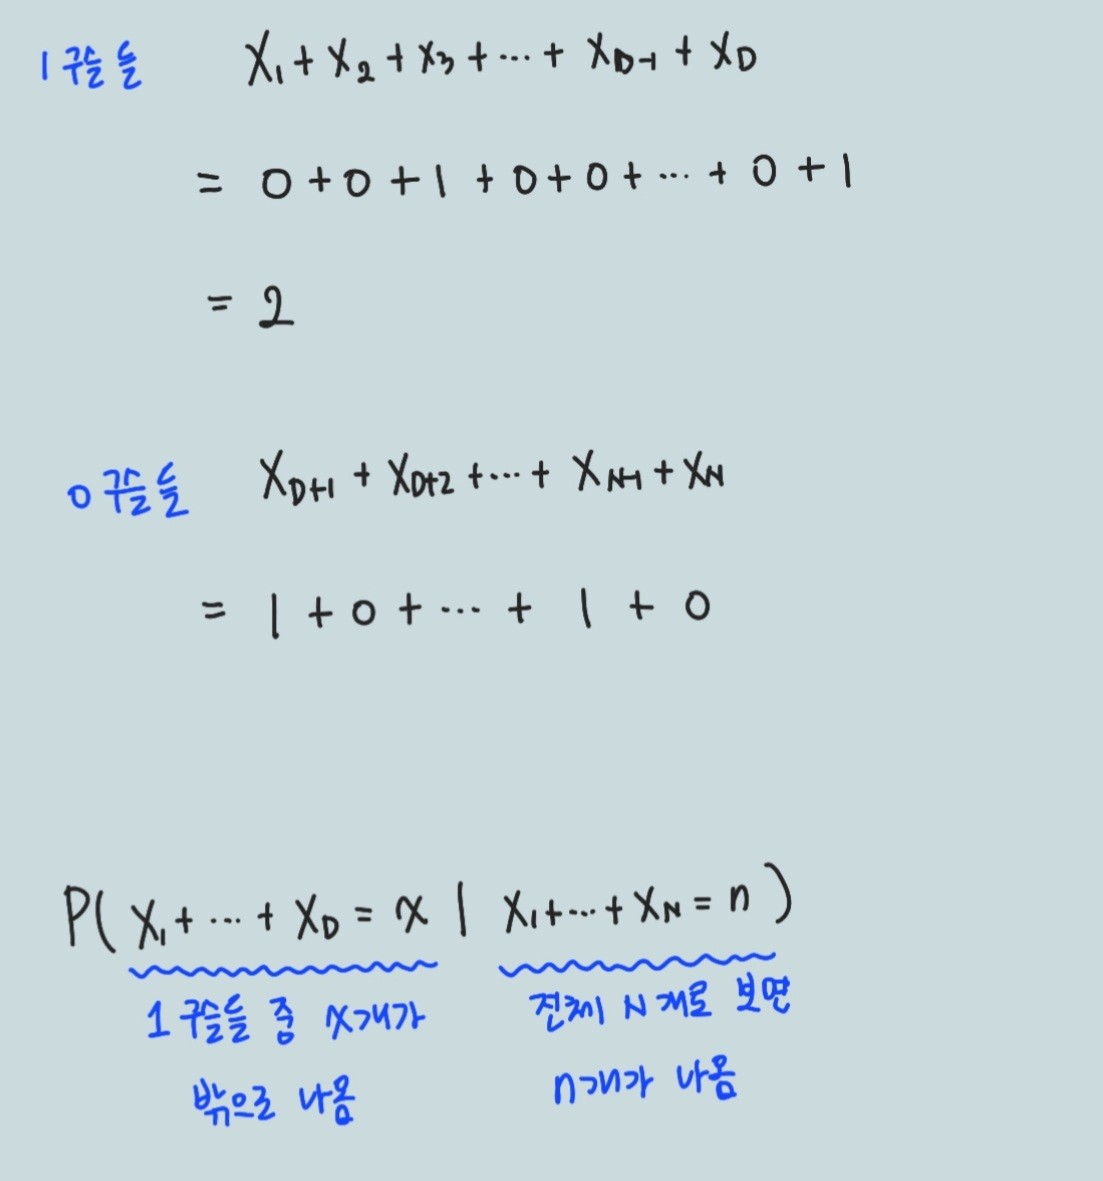 1구슬들 X₁ + X₂ + X₃ + ⋯ + X_{D-1} + X_D
= 0 + 0 + 1 + 0 + 0 + ⋯ + 0 + 1
= 2
0구슬들 X_{D+1} + X_{D+2} + ⋯ + X_{N-1} + X_N
= 1 + 0 + ⋯ + 1 + 0
P( X₁ + ⋯ + X_D = x | X₁ + ⋯ + X_N = n )
1구슬들 중 x개가 전체 N개로 보면
밖으로 나옴 n개가 나옴